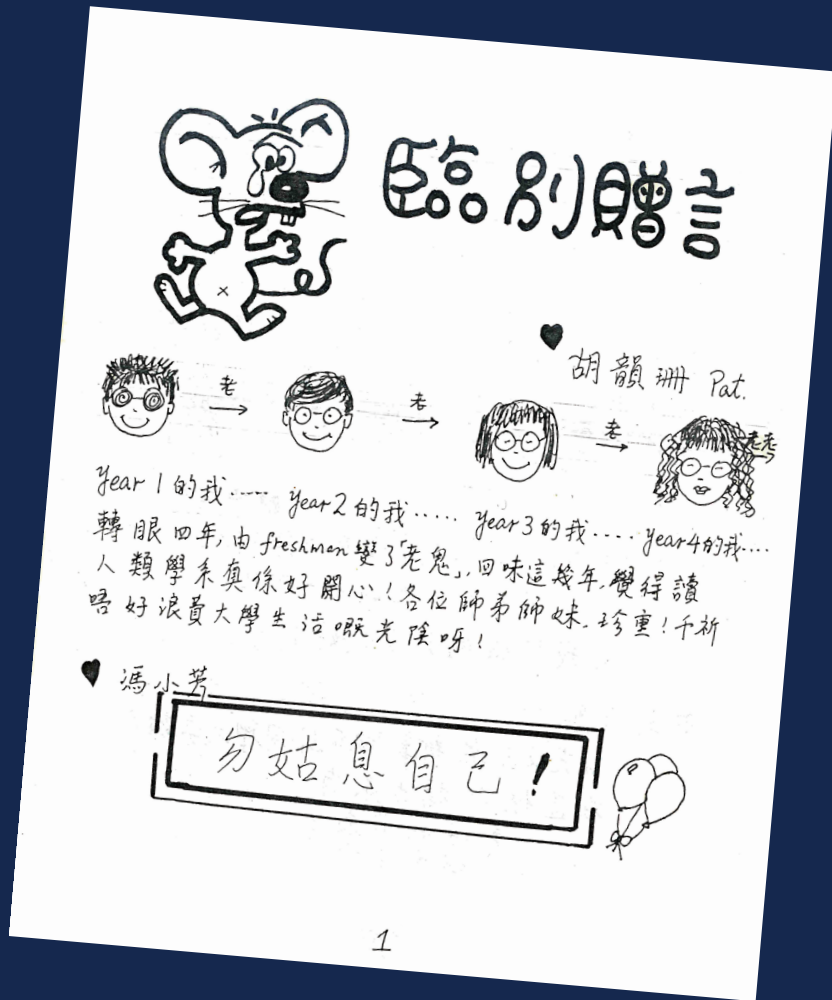 臨別贈言
♥ 胡韻珊 Pat.
老 → 老 → 老 → 老老 →
Year 1 的我..... year 2 的我..... year 3 的我..... year 4 的我....
轉眼四年, 由 freshmen 變了「老鬼」, 回味這幾年, 覺得讀
人類學系真係好開心! 各位師弟師妹, 珍重! 千祈
唔好浪費大學生活嘅光陰呀!
♥ 馮小芳
勿姑息自己!
1